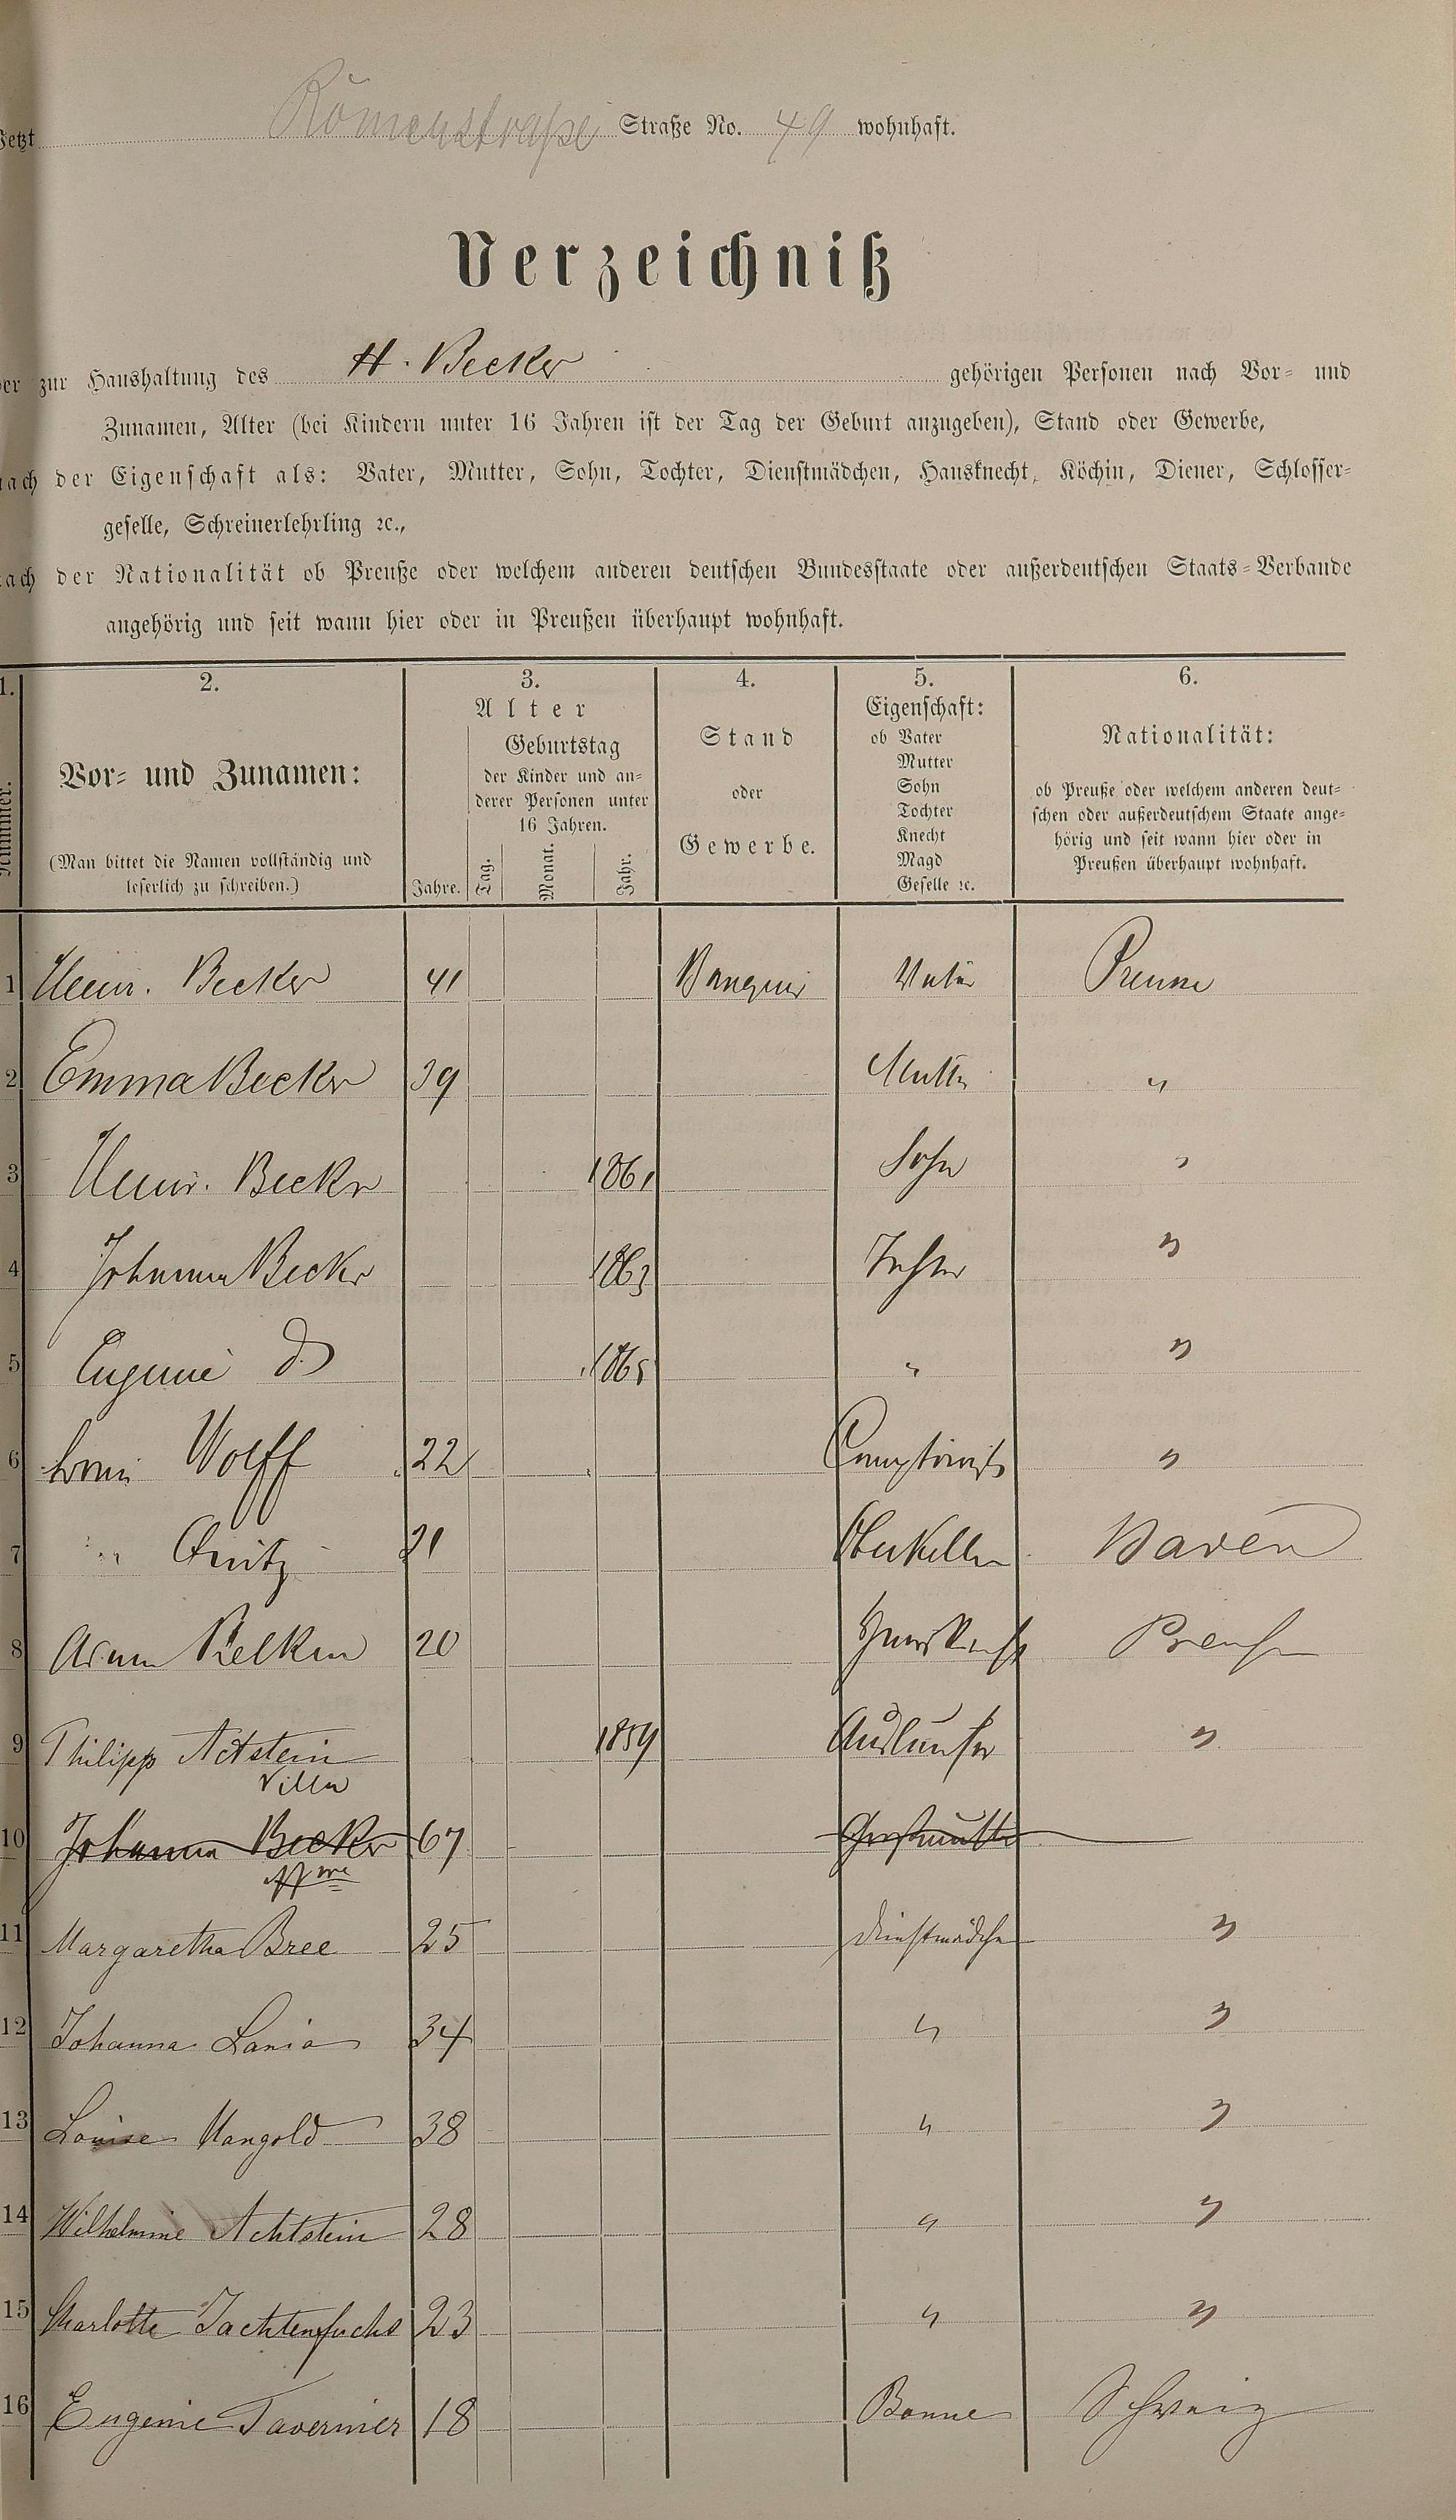 Jetzt Römerstraße Straße No. 49 wohnhaft.
Verzeichniß
der zur Haushaltung des H. Becker gehörigen Personen nach Vor- und
Zunamen, Alter (bei Kindern unter 16 Jahren ist der Tag der Geburt anzugeben), Stand oder Gewerbe,
nach der Eigenschaft als: Vater, Mutter, Sohn, Tochter, Dienstmädchen, Hausknecht, Köchin, Diener, Schlosser-
geselle, Schreinerlehrling ꝛc.,
nach der Nationalität ob Preuße oder welchem anderen deutschen Bundesstaate oder außerdeutschen Staats-Verbande
angehörig und seit wann hier oder in Preußen überhaupt wohnhaft.
1. 2. 3. 4. 5. 6.
Nummer.
Vor- und Zunamen:
(Man bittet die Namen vollständig und
leserlich zu schreiben.)
Alter
Jahre.
Geburtstag
der Kinder und an-
derer Personen unter
16 Jahren.
Tag. Monat. Jahr.
Stand
oder
Gewerbe.
Eigenschaft:
ob Vater
Mutter
Sohn
Tochter
Knecht
Magd
Geselle ꝛc.
Nationalität:
ob Preuße oder welchem anderen deut-
schen oder außerdeutschem Staate ange-
hörig und seit wann hier oder in
Preußen überhaupt wohnhaft.
1 Heinr. Becker 41 Banquier Vater Preusse
2 Emma Becker 39 Mutter "
3 Heinr. Becker 1861 Sohn "
4 Johanna Becker 1863 Tochter "
5 Eugenie do 1865 " "
6 Louis Wolff 22 Comptoirist "
7 " 21 Oberkellner Baden
8 20 Hausknecht Preuße
9 Philipp Achstein 1859 Ausläufer "
Villa
10 Johanna Becker 67 Großmutter
11 Margaretha Bree 25 Dienstmädchen "
12 Johanna Lania 34 " "
13 Louise Mangold 38 " "
14 Wilhelmine Achtstein 28 " "
15 Charlotte Jachtenfuchs 23 " "
16 Eugenie Tavernier 18 Bonne Schweiz